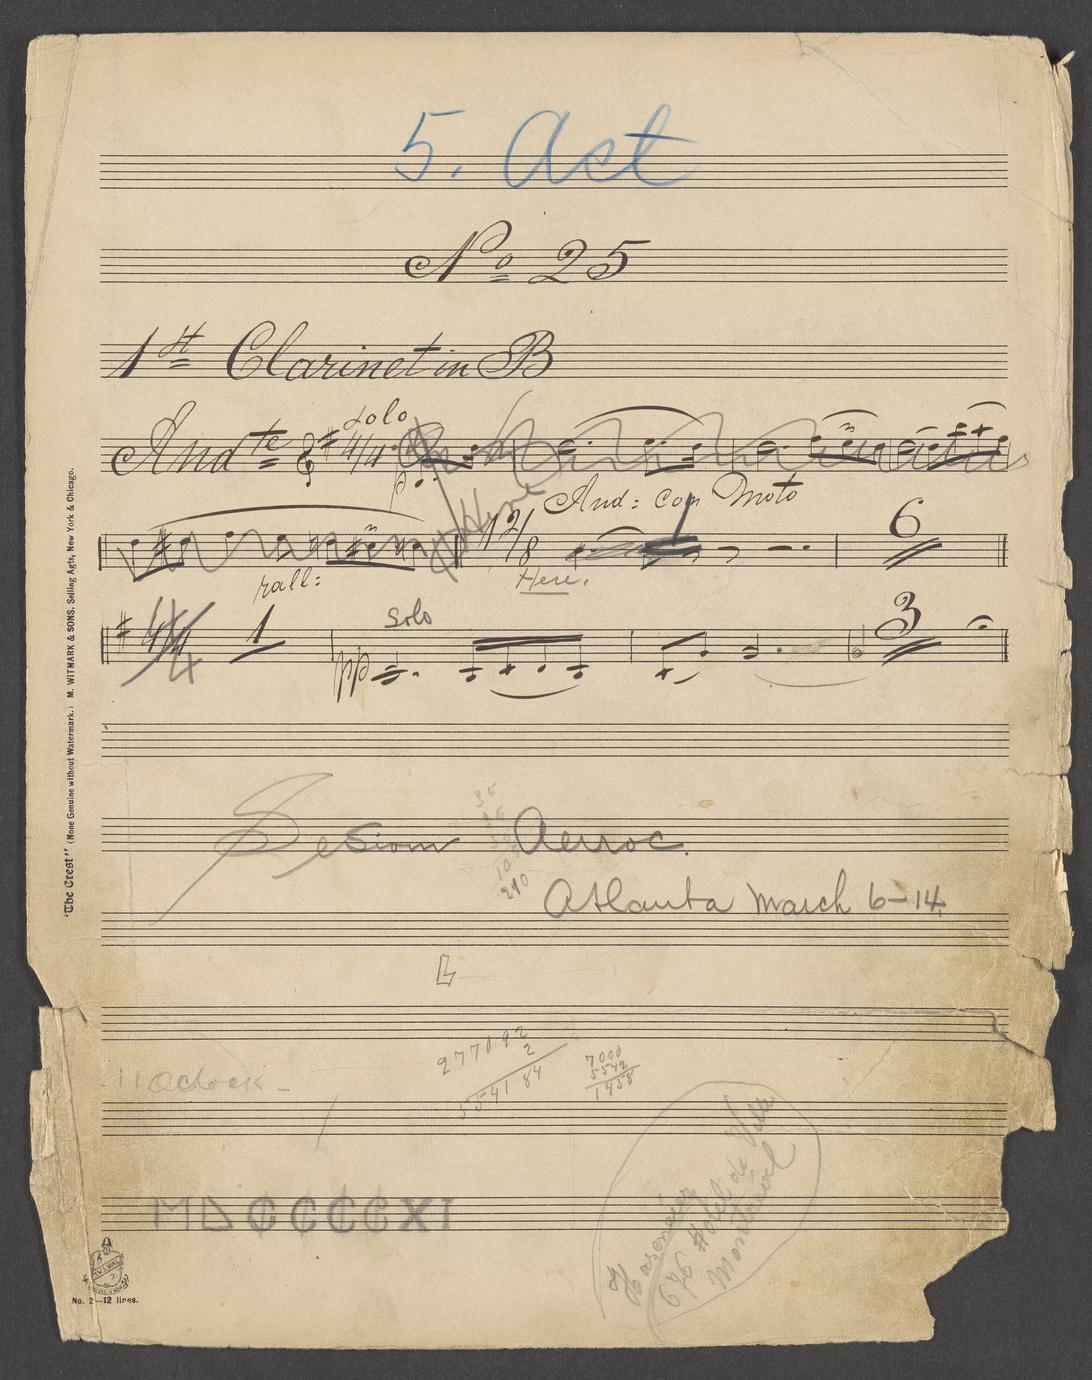 5. Act
No 25
1st Clarinet in B
Andte Solo 4/4
p
Here
And: con Moto
12/8
6
rall:
Here.
4/4 1 Solo 3
4
pp
Aerroc.
35
10
210
Atlanta March 6-14.
277092
2
554184
7000
5542
1458
11 Oclock -
MDCCCCXI
676 Hotel de Ville
Montreal
"The Crest" (None Genuine without Watermark.) M. WITMARK & SONS. Selling Agts, New York & Chicago.
No. 2-12 lines.